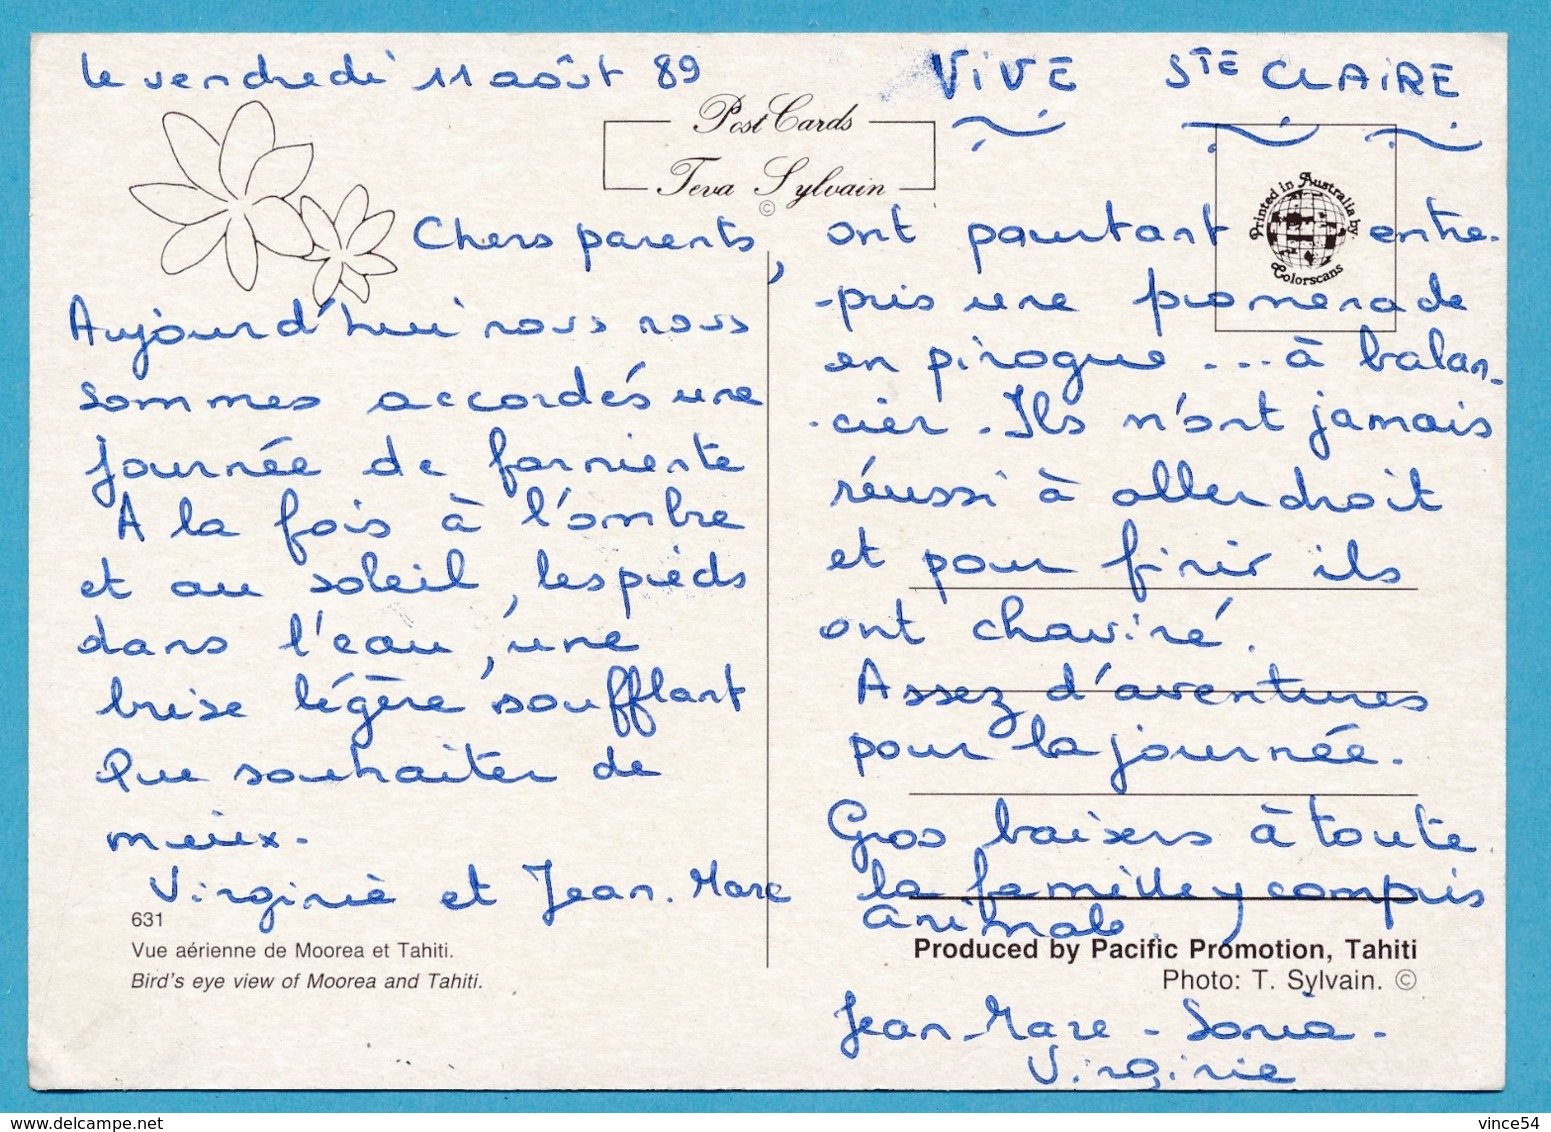 le vendredi 11 août 89
VIVE STE CLAIRE
Post Cards
Teva Sylvain
©
Printed in Australia by
Colorscans
Chers parents,
Aujourd'hui nous nous
sommes accordés une
journée de farniente
A la fois à l'ombre
et au soleil, les pieds
dans l'eau, une
brise légère soufflant
Que souhaiter de
mieux.
Virginie et Jean-Marc
631
Vue aérienne de Moorea et Tahiti.
Bird's eye view of Moorea and Tahiti.
ont pourtant entre-
-pris une promenade
en pirogue ... à balan-
-cier. Ils n'ont jamais
réussi à aller droit
et pour finir ils
ont chaviré.
Assez d'aventures
pour la journée.
Gros baisers à toute
la famille y compris
animals.
Produced by Pacific Promotion, Tahiti
Photo: T. Sylvain. ©
Jean-Marc - Sonia -
Virginie
www.delcampe.net
vince54